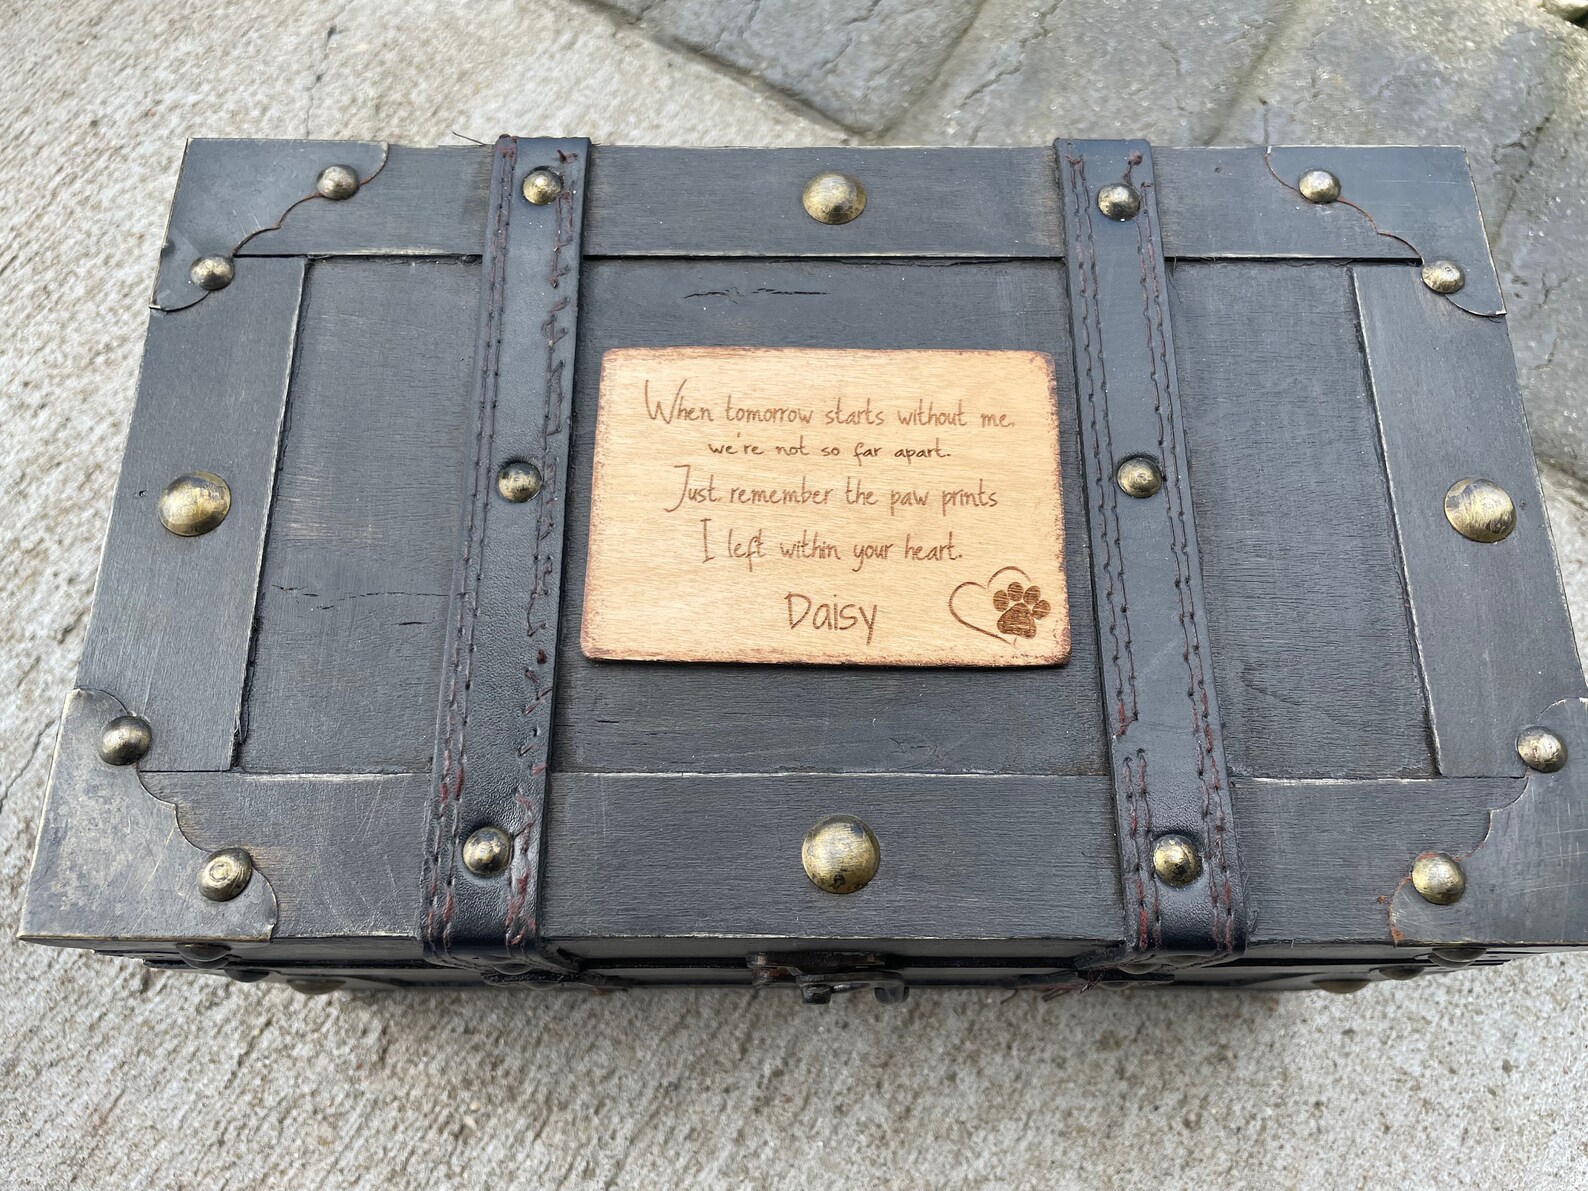 When tomorrow starts without me,
we're not so far apart.
Just remember the paw prints
I left within your heart.
Daisy